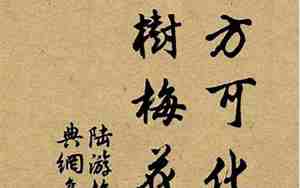 方可化
樹梅花
陸游
典網